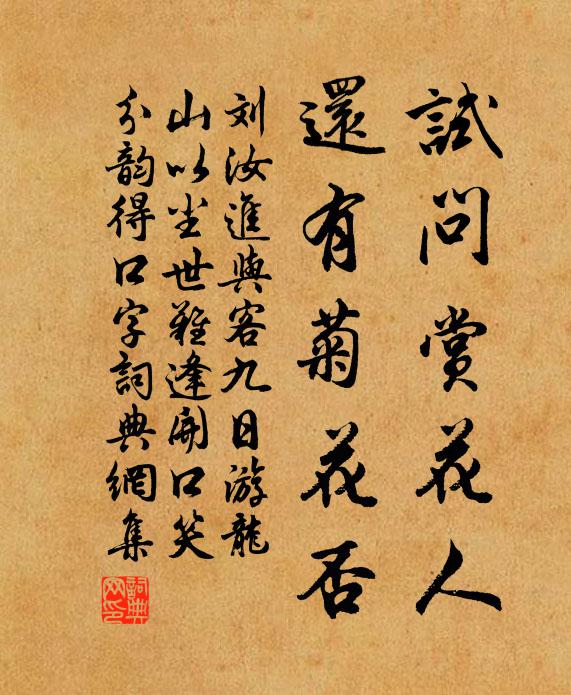 試問賞花人
還有菊花否
刘汝進與客九日游龍
山以尘世難逢開口笑
分韵得口字詞典網集
詞典網印